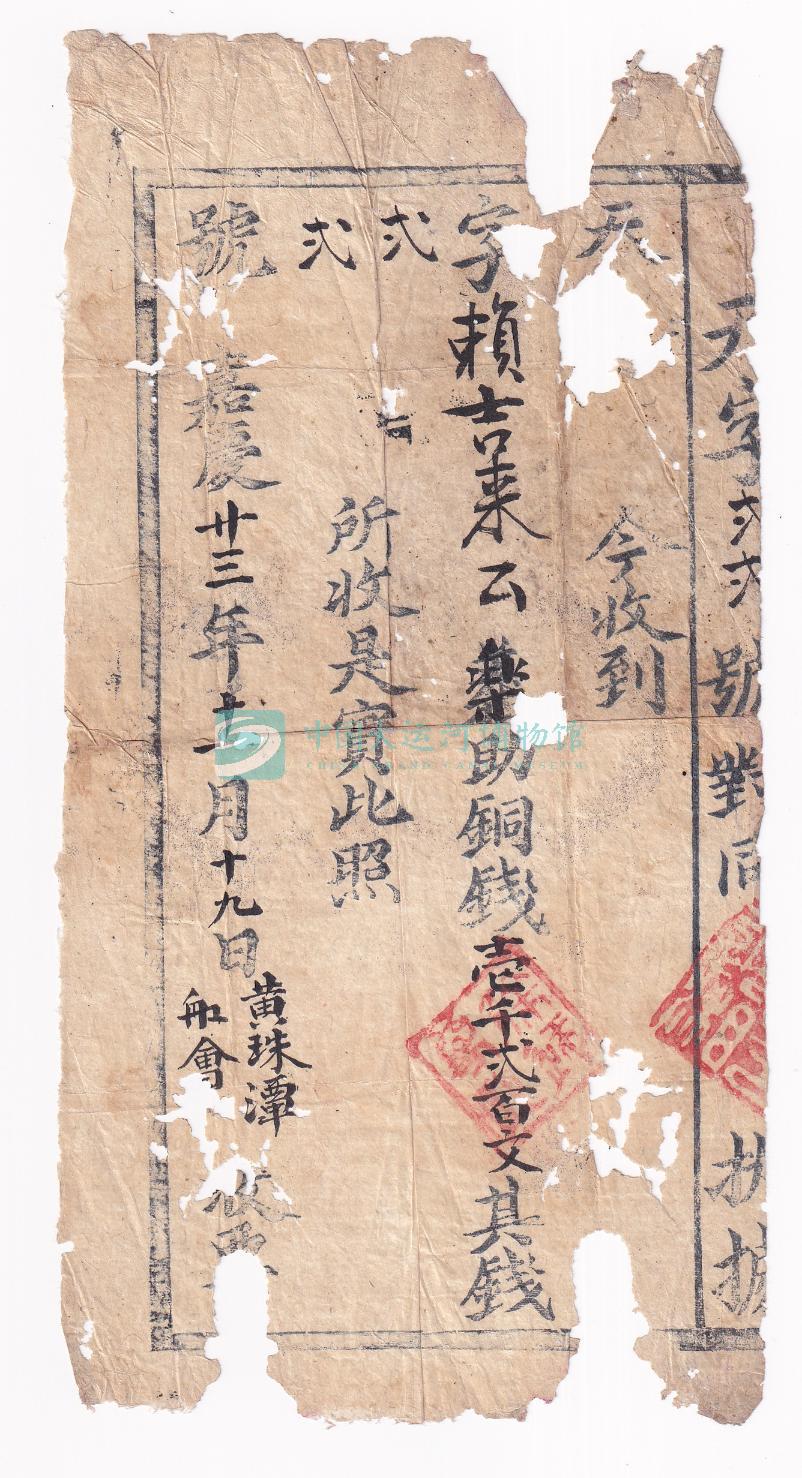 天字弍弍號對同
執據
天
今收到
字賴士口莱公樂助銅錢壹千弍百文其錢
弍
所收是實此照
弍
號嘉慶廿三年十一月十九日
黄珠潭
船會
收票
中国大运河博物馆
CHINA GRAND CANAL MUSEUM